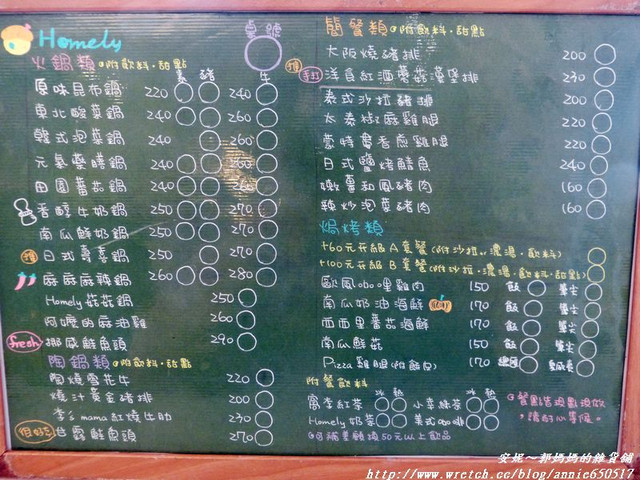 Homely
桌號
火鍋類 附飲料·甜點
素 豬 牛
原味昆布鍋 220 240
東北酸菜鍋 240 260
韓式泡菜鍋 240 260
元氣藥膳鍋 240 260
田園蕃茄鍋 240 260
香醇牛奶鍋 250 270
南瓜鮮奶鍋 250 270
日式壽喜鍋 250 270
麻麻麻辣鍋 260 280
Homely菇菇鍋 250
阿嬤的麻油雞 260
fresh 挪威鮭魚頭 290
陶鍋類 附飲料·甜點
陶燒雪花牛 220
燒汁黃金豬排 200
李's mama紅燒牛肋 230
台灣鮭魚頭 270
簡餐類 附飲料·甜點
大阪燒豬排 200
推 手打 洋食紅酒蘑菇漢堡排 230
泰式沙拉豬排 200
太泰椒麻雞腿 220
蒙特婁香煎雞腿 220
日式鹽烤鯖魚 240
嫩薑和風豬肉 160
辣炒泡菜豬肉 160
焗烤類
+60元升級A套餐(附沙拉or濃湯·飲料)
+100元升級B套餐(附沙拉·濃湯·飲料·甜點)
歐風obo哩雞肉 150 飯 筆尖
南瓜奶油海鮮 170 飯 筆尖
西西里蕃茄海鮮 170 飯 筆尖
南瓜鮮菇 150 飯 筆尖
Pizza雞腿(附飯包) 170
附餐飲料
冰 熱 冰 熱
窩李紅茶 小幸綠茶
Homely奶茶 美式obo啡
可補差額換50元以上飲品
餐點皆現點現做
請耐心等候。
安妮~郭媽媽的雜貨鋪
http://www.wretch.cc/blog/annie650517